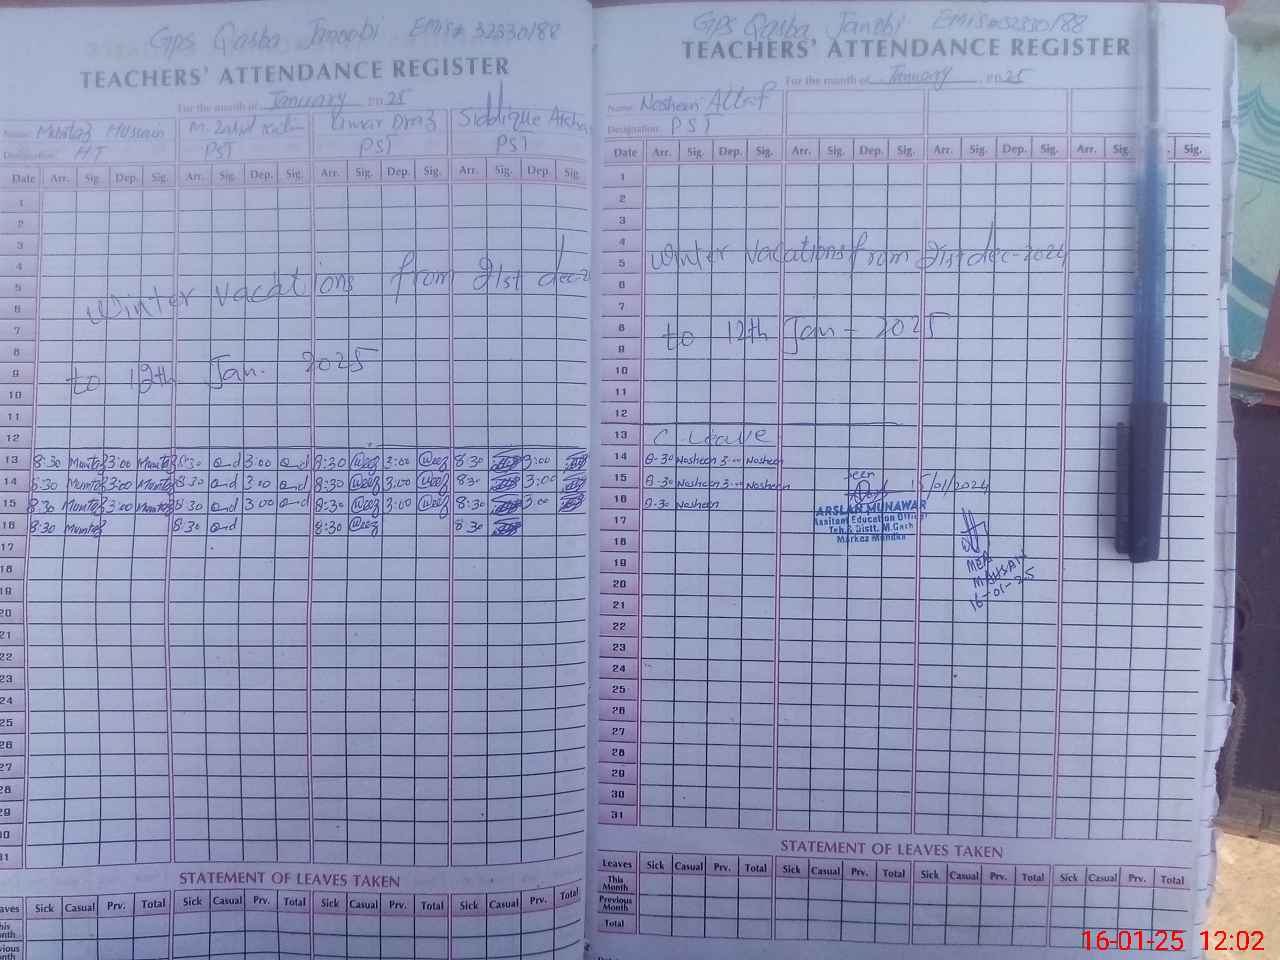 Gps Qasba Janoobi Emis# 32330188
TEACHERS' ATTENDANCE REGISTER
For the month of January on 25
Name Mumtaz Hussain Umar Draz Siddique
Designation HT PST PST PST
Date Arr. Sig. Dep. Sig. Arr. Sig. Dep. Sig. Arr. Sig. Dep. Sig. Arr. Sig. Dep. Sig.
1
2
3
4
5
winter vacations from 21st dec-2
6
7
8
9
to 12th Jan. 2025
10
11
12
13 8:30 Mumtaz 3:00 Mumtaz 8:30 3:00 8:30 3:00 8:30 3:00
14 8:30 Mumtaz 3:00 Mumtaz 8:30 3:00 8:30 3:00 8:30 3:00
15 8:30 Mumtaz 3:00 Mumtaz 8:30 3:00 8:30 3:00 8:30 3:00
16 8:30 Mumtaz 8:30 8:30 8:30
17
18
19
20
21
22
23
24
25
26
27
28
29
30
31
STATEMENT OF LEAVES TAKEN
aves Sick Casual Prv. Total Sick Casual Prv. Total Sick Casual Prv. Total Sick Casual Prv. Total
his
onth
vious
onth
Gps Qasba Janobi Emis#32330188
TEACHERS' ATTENDANCE REGISTER
For the month of January on 25
Name Nosheen Altaf
Designation PST
Date Arr. Sig. Dep. Sig. Arr. Sig. Dep. Sig. Arr. Sig. Dep. Sig. Arr. Sig. . Sig.
1
2
3
4
winter vacations from 21st dec-2024
5
6
7
8
to 12th Jan - 2025
9
10
11
12
13 C. Leave
14 8-30 Nosheen 3-00 Nosheen
15 8-30 Nosheen 3-00 Nosheen
Seen
15/01/2024
16 8-30 Nosheen
ARSLAN MUNAWAR
Assitant Education Officer
Teh & Distt. M.Garh
Markez Mundka
17
18
19
MEA
MOHSAN
16-01-25
20
21
22
23
24
25
26
27
28
29
30
31
STATEMENT OF LEAVES TAKEN
Leaves Sick Casual Prv. Total Sick Casual Prv. Total Sick Casual Prv. Total Sick Casual Prv. Total
This
Month
Previous
Month
Total
16-01-25 12:02